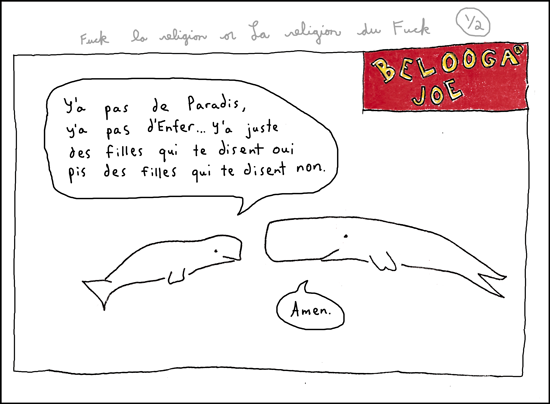 Fuck la religion or La religion du Fuck 1/2
BELOOGA
JOE
Y'a pas de Paradis,
y'a pas d'Enfer... Y'a juste
des filles qui te disent oui
pis des filles qui te disent non.
Amen.